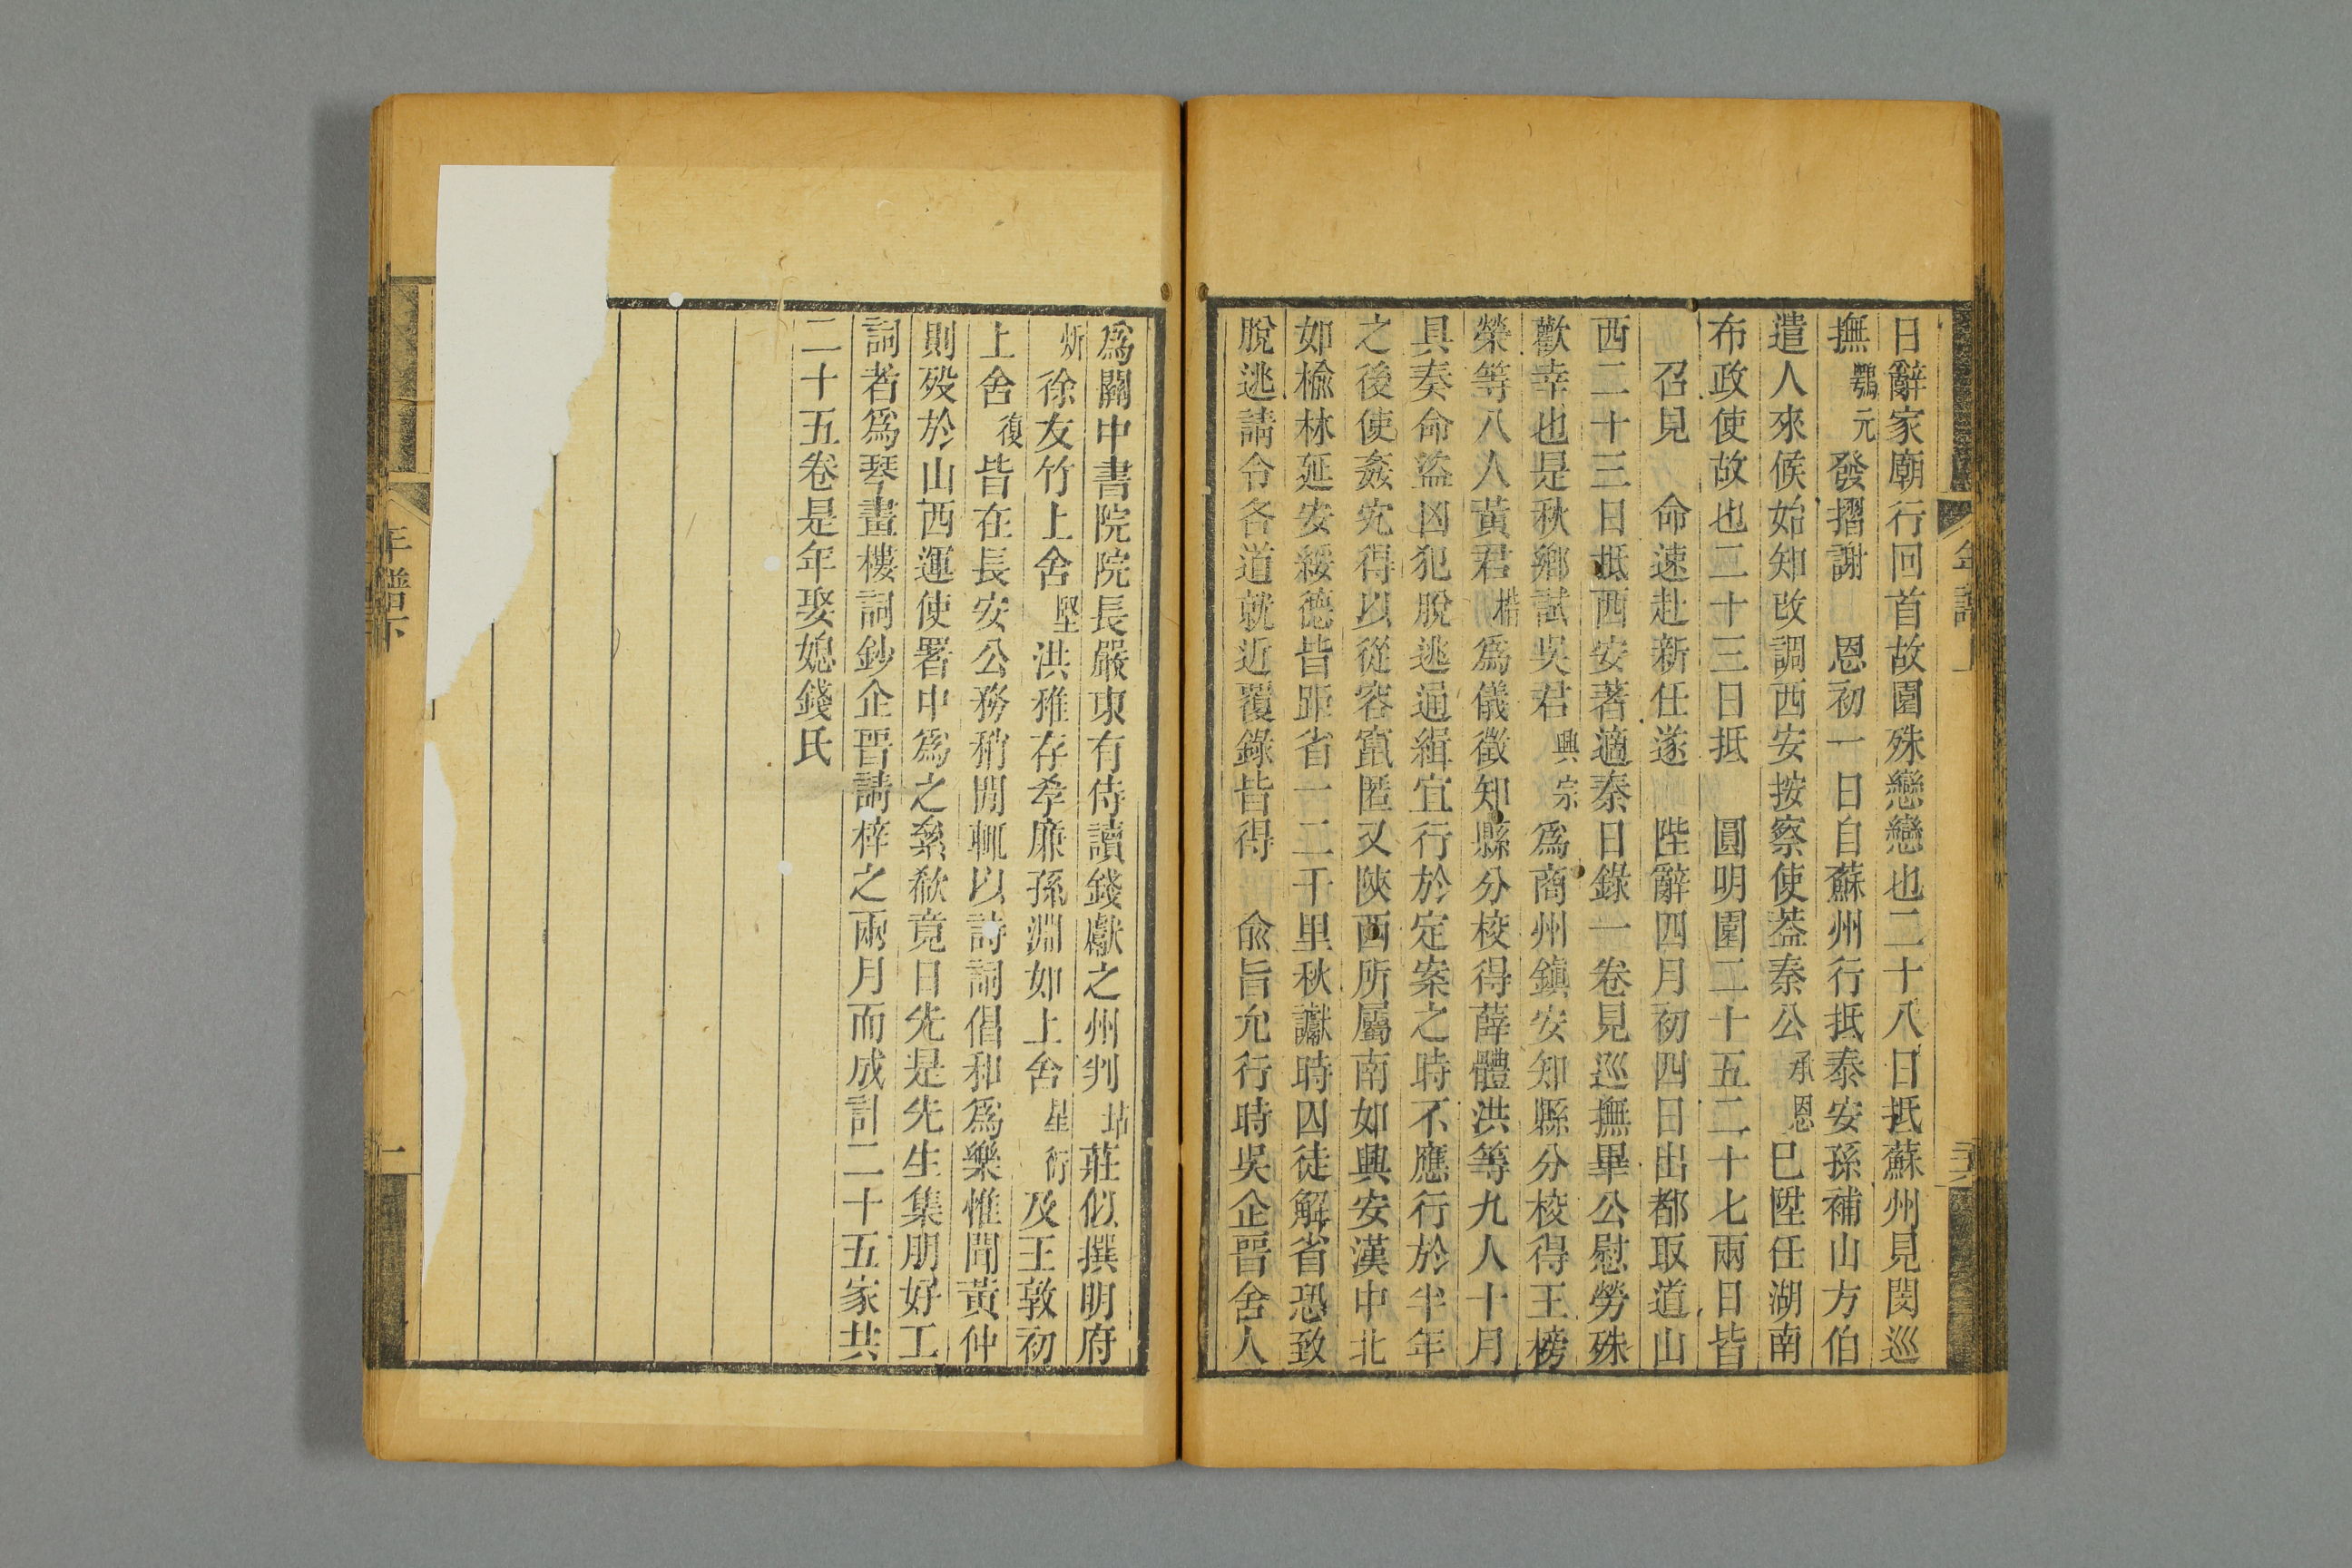 年譜上
日辭家廟行回首故園殊戀戀也二十八日抵蘇州見閔巡
撫鶚元發摺謝 恩初一日自蘇州行抵泰安孫補山方伯
遣人來候始知改調西安按察使葢秦公承恩已陞任湖南
布政使故也二十三日抵 圓明園二十五二十七兩日皆
召見 命速赴新任遂 陛辭四月初四日出都取道山
西二十三日抵西安著適秦日錄一卷見巡撫畢公慰勞殊
歡幸也是秋鄉試吳君興宗為商州鎮安知縣分校得王榜
榮等八人黃君楷為儀徵知縣分校得薛體洪等九人十月
具奏命盜凶犯脫逃通緝宜行於定案之時不應行於半年
之後使姦宄得以從容竄匿又陝西所屬南如興安漢中北
如榆林延安綏德皆距省一二千里秋讞時囚徒解省恐致
脫逃請令各道就近覆錄皆得 俞旨允行時吳企晉舍人
為關中書院院長嚴東有侍讀錢獻之州判坫莊似撰明府
炘徐友竹上舍堅洪稚存孝廉孫淵如上舍星衍及王敦初
上舍復皆在長安公務稍閒輒以詩詞倡和為樂惟聞黃仲
則歿於山西運使署中為之欷歔竟日先是先生集朋好工
詞者為琴畫樓詞鈔企晉請梓之兩月而成計二十五家共
二十五卷是年娶媳錢氏
年譜下
一